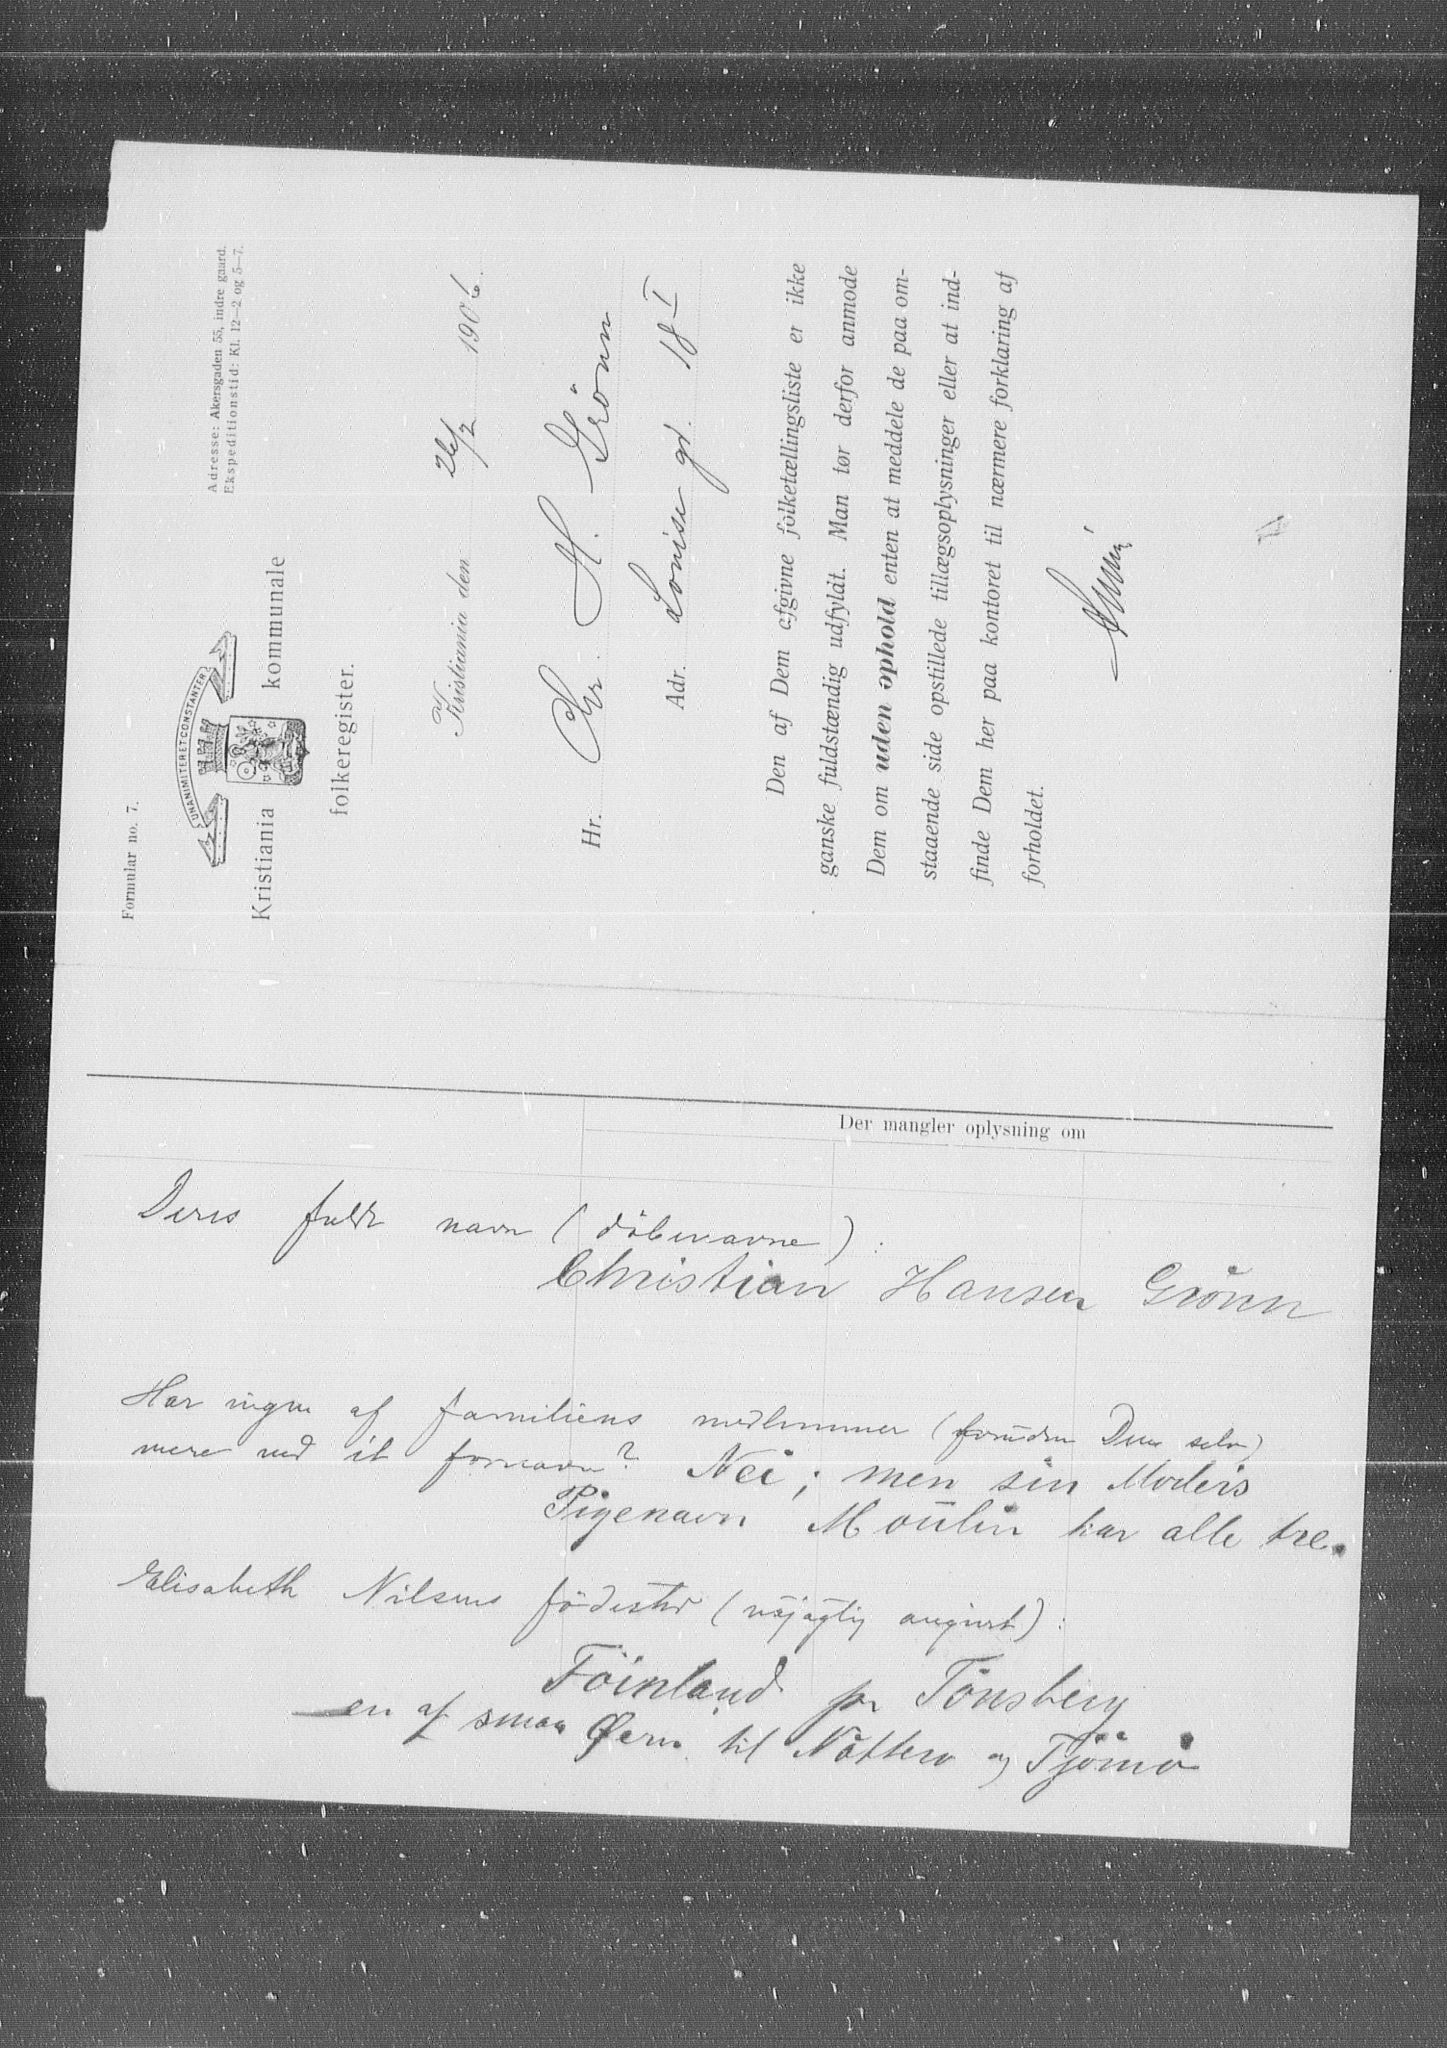 Formular no. 7.
Adresse: Akersgaden 55, indre gaard.
Ekspeditionstid: Kl. 12—2 og 5—7.
UNANIMITER ET CONSTANTER
Kristiania kommunale
folkeregister.
Kristiania den 26/2 1906.
Hr. Chr. H. Grönn
Adr. Louises gd. 18 I
Den af Dem afgivne folketællingsliste er ikke
ganske fuldstændig udfyldt. Man tør derfor anmode
Dem om uden ophold enten at meddele de paa om-
staaende side opstillede tillægsoplysninger eller at ind-
finde Dem her paa kontoret til nærmere forklaring af
forholdet.
Der mangler oplysning om
Deres fulde navn (döbenavne):
Christian Hansen Grönn
Har ingen af familiens medlemmer (foruden Dem selv)
mere end et fornavn? Nei; men sin Moders
Pigenavn Moulin har alle tre.
Elisabeth Nilsens födested (nöjagtig angivet):
Föinland pr Tönsberg
en af smaa Øerne til Nötterö og Tjömö